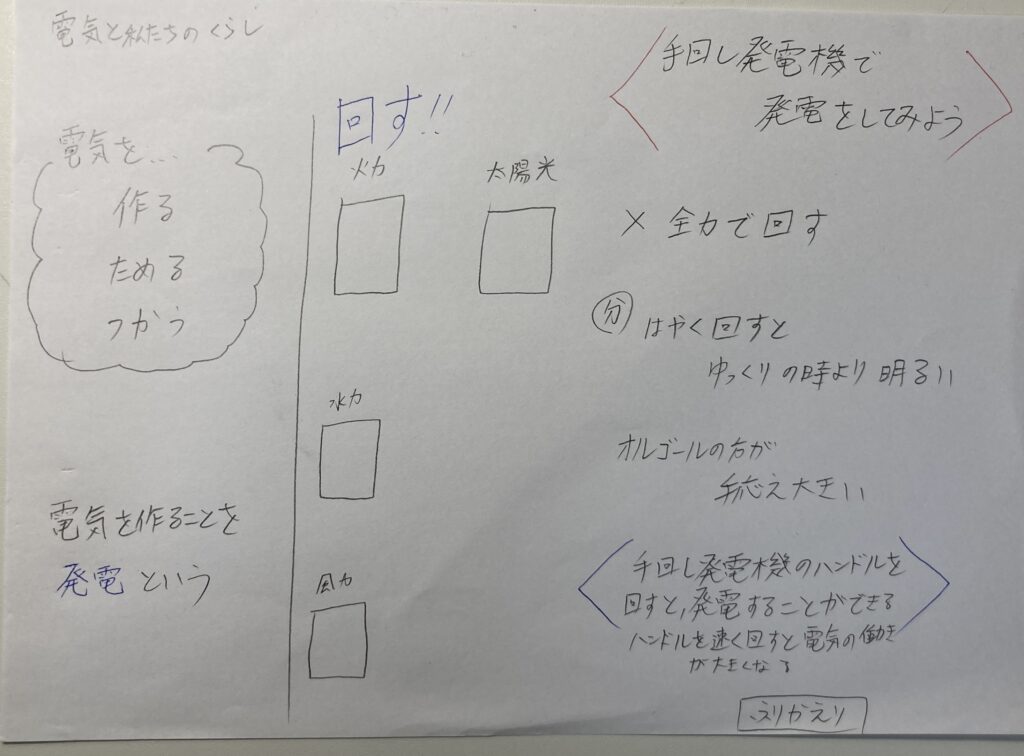 電気と私たちのくらし
電気を…
作る
ためる
つかう
電気を作ることを
発電という
回す!!
火力
太陽光
水力
風力
手回し発電機で
発電をしてみよう
× 全力で回す
分 はやく回すと
ゆっくりの時より明るい
オルゴールの方が
手応え大きい
手回し発電機のハンドルを
回すと,発電することができる
ハンドルを速く回すと電気の働き
が大きくなる
ふりかえり